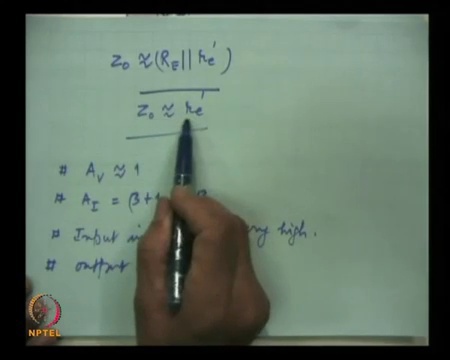 Zo ≈ (RE || re')
Zo ≈ re'
# Av ≈ 1
# AI = (β+1
# Input high.
# output
NPTEL